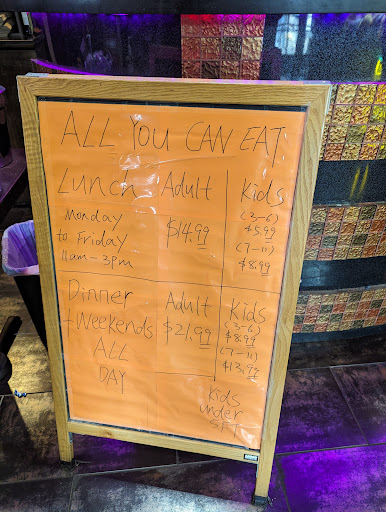 ALL YOU CAN EAT
Lunch Adult Kids
Monday
to Friday
11am-3pm
$14.99
(3-6)
$5.99
(7-11)
$8.99
Dinner
+Weekends
ALL
DAY
Adult
$21.99
Kids
(3-6)
$8.99
(7-11)
$13.99
Kids
under
3FT